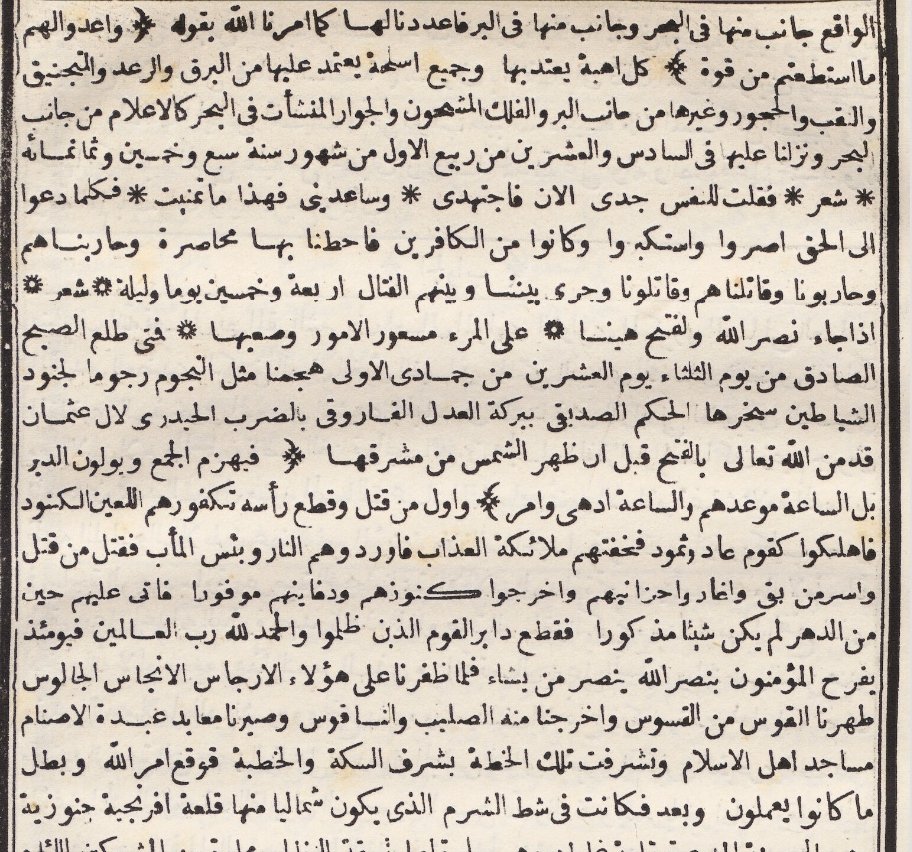 الواقع جانب منها فى البحر وجانب منها فى البر فاعددنا لهـا كما امرنا الله بقوله ﴿ واعدوا لهم
ما استطعتم من قوة ﴾ كل اهبة يعتد بها وجميع اسلحة يعتمد عليها من البرق والرعد والمنجنيق
والنقب والحجور وغيرها من جانب البر والفلك المشحون والجوار المنشأت فى البحر كالاعلام من جانب
البحر ونزلنا عليها فى السادس والعشرين من ربيع الاول من شهور سنة سبع وخمسين وثمانمائه
* شعر * فقلت للنفس جدى الان فاجتهدى * وساعدينى فهذا ما تمنيت * فكلما دعوا
الى الحق اصروا واستكبروا وكانوا من الكافرين فاحطنا بها محاصرة وحاربناهم
وحاربونا وقاتلناهم وقاتلونا وجرى بيننا وبينهم القتال اربعة وخمسين يوما وليلة * شعر *
اذا جاء نصر الله والفتح هينا * على المرء مسعور الامور وصعبها * فمتى طلع الصبح
الصادق من يوم الثلثاء يوم العشرين من جمادى الاولى هجمنا مثل النجوم رجوما لجنود
الشياطين سخرها الحكم الصديقى ببركة العدل الفاروقى بالضرب الحيدرى لال عثمان
قد من الله تعالى بالفتح قبل ان ظهر الشمس من مشرقها ﴿ فيهزم الجمع ويولون الدبر
بل الساعة موعدهم والساعة ادهى وامر ﴾ واول من قتل وقطع رأسه تكفورهم اللعين الكنود
فاهلكوا كقوم عاد وثمود فحفتهم ملائكة العذاب فاوردوهم النار وبئس المأب فقتل من قتل
واسر من بقى واغاروا خزانيهم واخرجوا كنوزهم ودفاينهم موفورا فاتى عليهم حين
من الدهر لم يكن شيئا مذكورا فقطع دابر القوم الذين ظلموا والحمد لله رب العالمين فيومئذ
يفرح المؤمنون بنصر الله ينصر من يشاء فلما ظفرنا على هؤلاء الارجاس الانجاس الجالوس
طهرنا القوس من القسوس واخرجنا منه الصليب والناقوس وصيرنا معابد عبدة الاصنام
مساجد اهل الاسلام وتشرفت تلك الخطة بشرف السكة والخطبة فوقع امر الله وبطل
ما كانوا يعملون وبعد فكانت فى شط الشرم الذى يكون شماليا منها قلعة افرنجية جنوزية